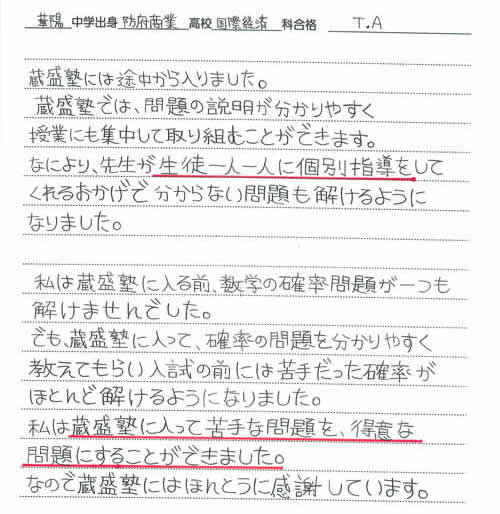 華陽 中学出身 防府商業 高校 国際経済 科合格 T.A
蔵盛塾には途中から入りました。
蔵盛塾では、問題の説明が分かりやすく
授業にも集中して取り組むことができます。
なにより、先生が生徒一人一人に個別指導をして
くれるおかげで分からない問題も解けるように
なりました。
私は蔵盛塾に入る前、数学の確率問題が一つも
解けませんでした。
でも、蔵盛塾に入って、確率の問題を分かりやすく
教えてもらい入試の前には苦手だった確率が
ほとんど解けるようになりました。
私は蔵盛塾に入って苦手な問題を、得意な
問題にすることができました。
なので蔵盛塾にはほんとうに感謝しています。